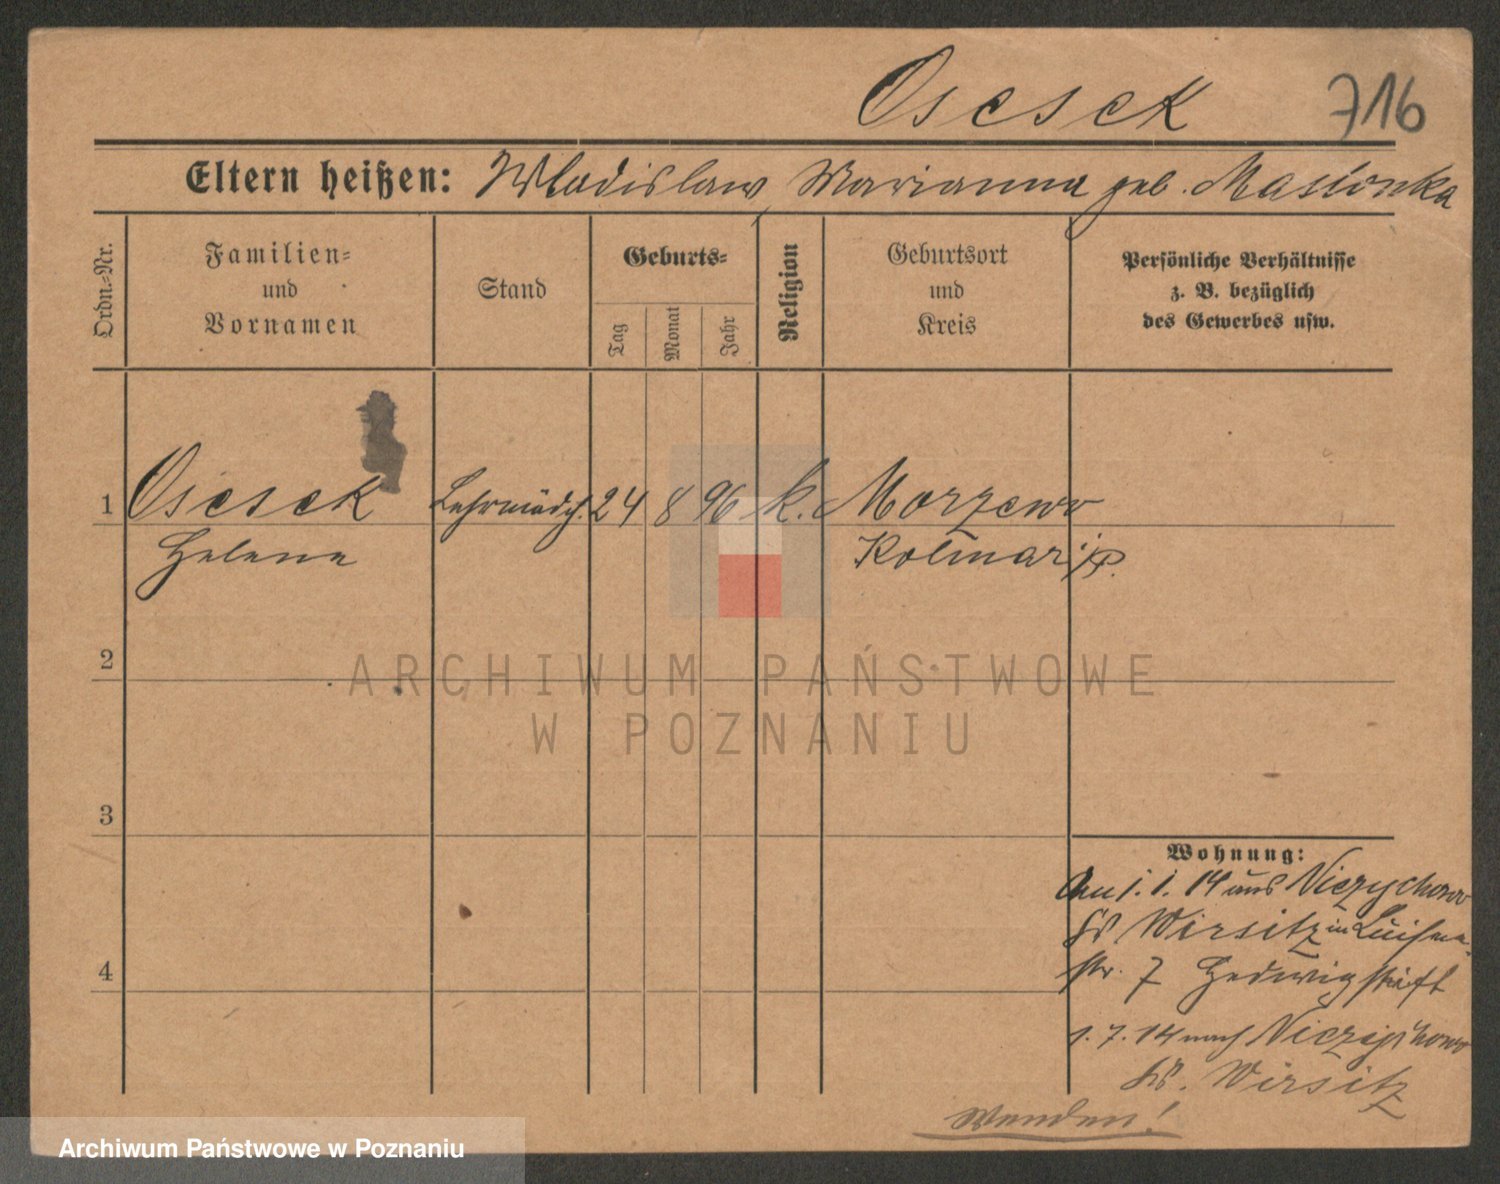 Osesek 716
Eltern heißen: Wladislaw, Marianna geb. Maslonka
Ordn.-Nr.
Familien-
und
Vornamen
Stand
Geburts-
Tag
Monat
Jahr
Religion
Geburtsort
und
Kreis
Persönliche Verhältnisse
z. B. bezüglich
des Gewerbes usw.
1 Osesek Lehrmädch. 24 8 96 k. Morzewo
Helene Kolmar i/P.
2
ARCHIWUM PAŃSTWOWE
W POZNANIU
3
4
Wohnung:
1. 14 aus Niezychowo
Kr Wirsitz in Luisen-
str. 7 Hedwigstift
1. 7. 14 nach Niezychowo
Kr. Wirsitz
Wenden!
Archiwum Państwowe w Poznaniu